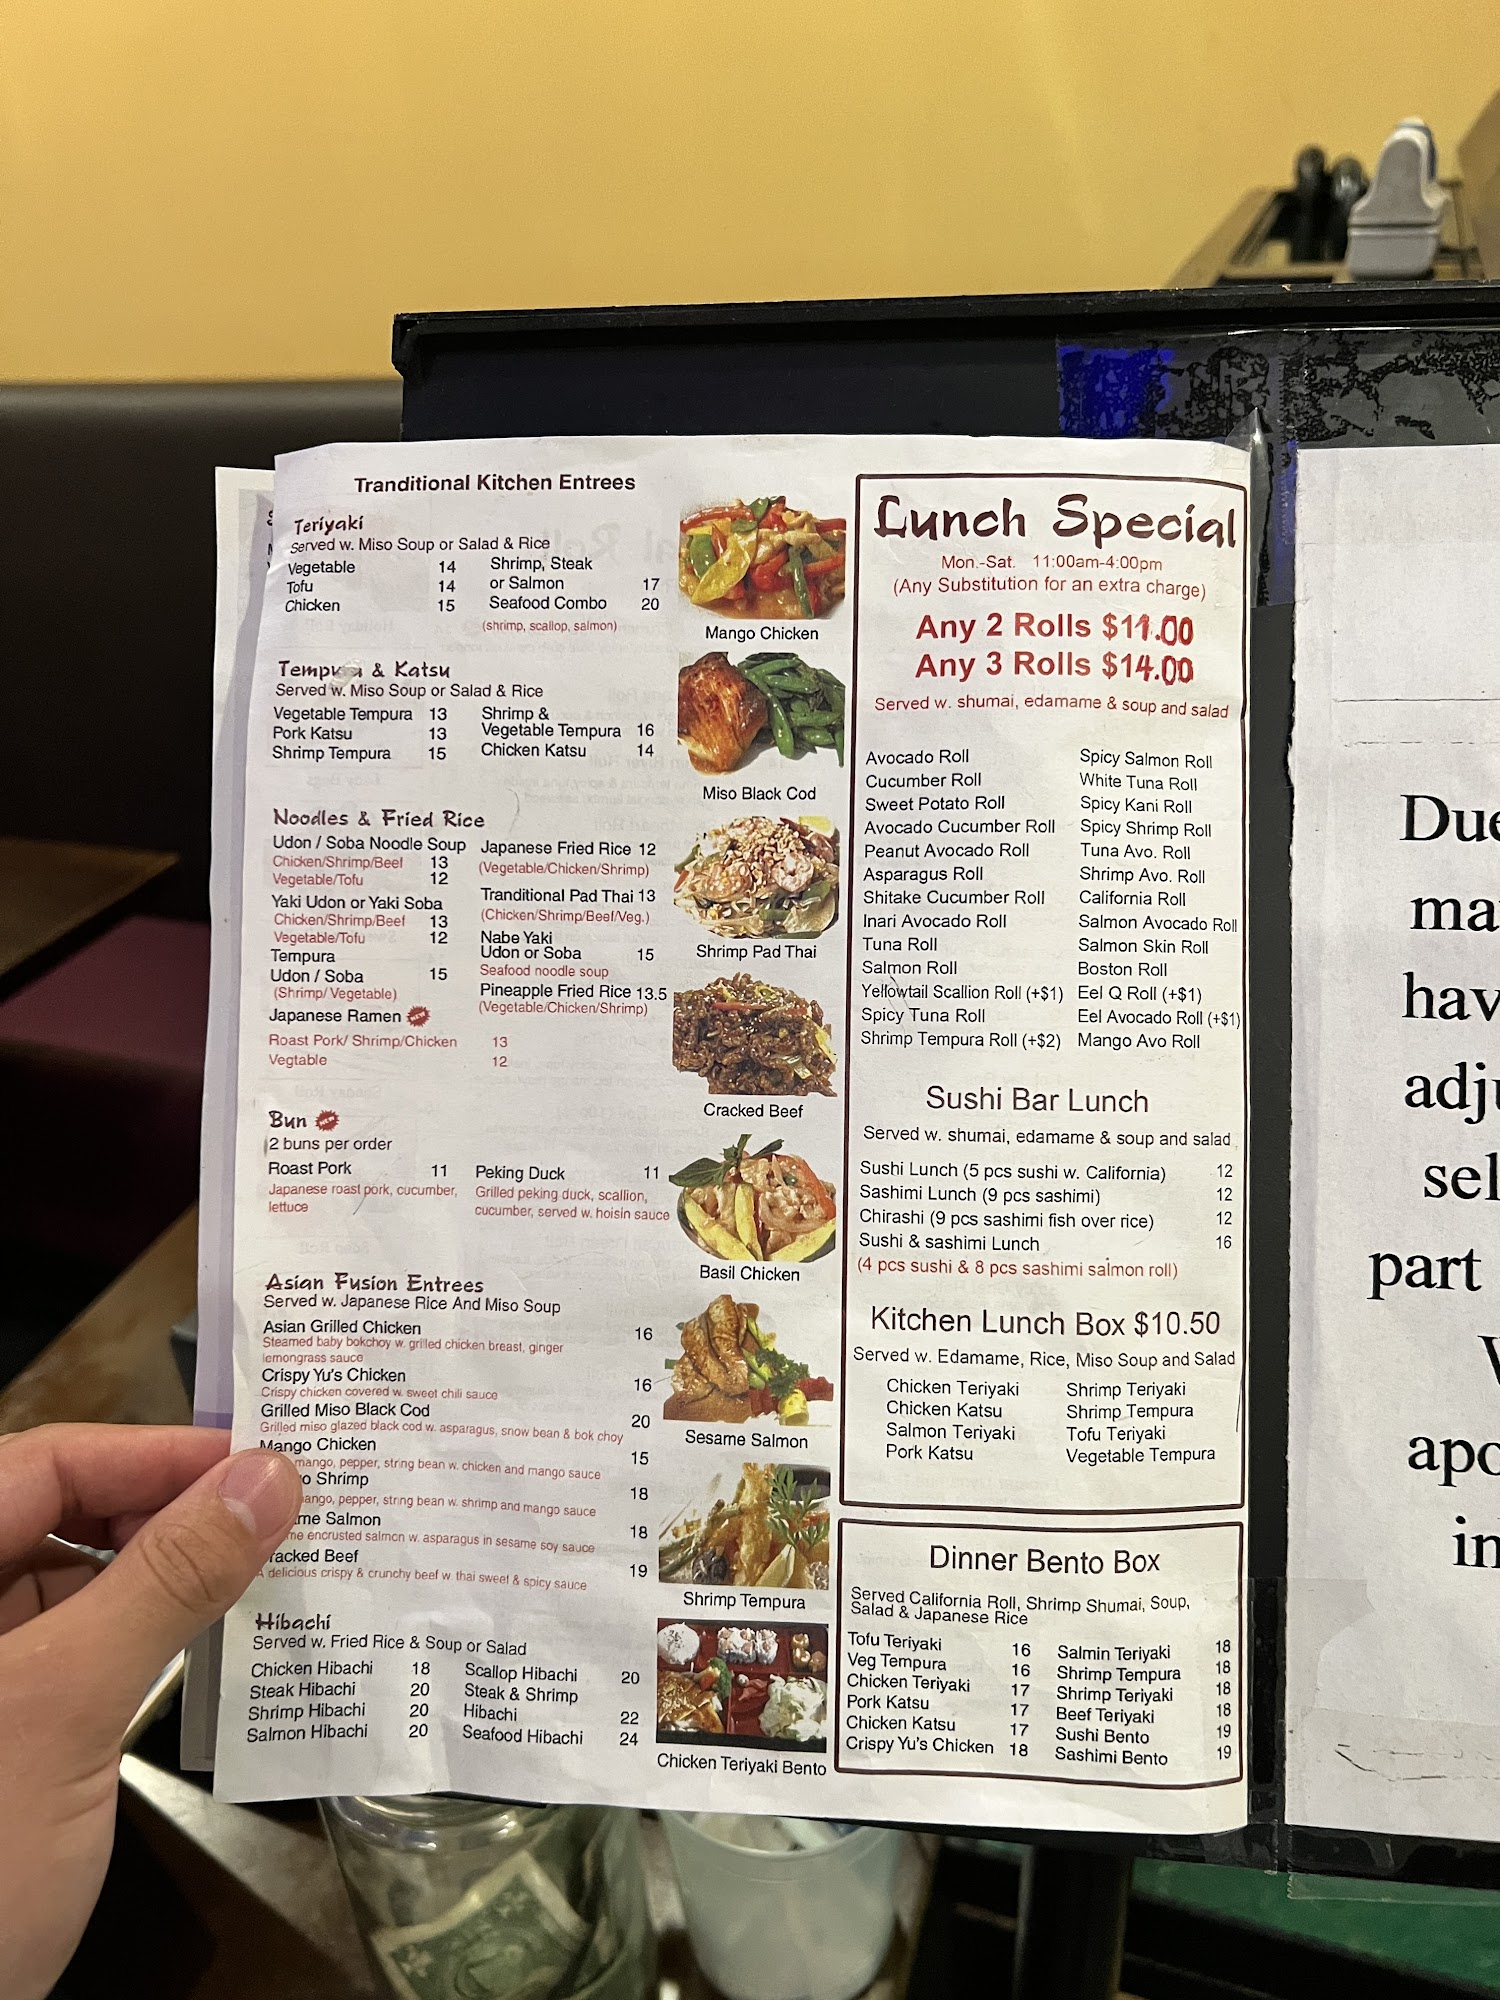 Tranditional Kitchen Entrees
Teriyaki
Served w. Miso Soup or Salad & Rice
Vegetable 14
Tofu 14
Chicken 15
Shrimp, Steak
or Salmon 17
Seafood Combo 20
(shrimp, scallop, salmon)
& Katsu
Served w. Miso Soup or Salad & Rice
Vegetable Tempura 13
Pork Katsu 13
Shrimp Tempura 15
Shrimp &
Vegetable Tempura 16
Chicken Katsu 14
Noodles & Fried Rice
Udon / Soba Noodle Soup
Chicken/Shrimp/Beef 13
Vegetable/Tofu 12
Yaki Udon or Yaki Soba
Chicken/Shrimp/Beef 13
Vegetable/Tofu 12
Tempura
Udon / Soba 15
(Shrimp/ Vegetable)
Japanese Ramen
Roast Pork/ Shrimp/Chicken 13
Vegtable 12
Japanese Fried Rice 12
(Vegetable/Chicken/Shrimp)
Tranditional Pad Thai 13
(Chicken/Shrimp/Beef/Veg.)
Nabe Yaki
Udon or Soba 15
Seafood noodle soup
Pineapple Fried Rice 13.5
(Vegetable/Chicken/Shrimp)
Bun
2 buns per order
Roast Pork 11
Japanese roast pork, cucumber,
lettuce
Peking Duck 11
Grilled peking duck, scallion,
cucumber, served w. hoisin sauce
Asian Fusion Entrees
Served w. Japanese Rice And Miso Soup
Asian Grilled Chicken 16
Steamed baby bokchoy w. grilled chicken breast, ginger
lemongrass sauce
Crispy Yu's Chicken 16
Crispy chicken covered w. sweet chili sauce
Grilled Miso Black Cod 20
Grilled miso glazed black cod w. asparagus, snow bean & bok choy
Mango Chicken 15
mango, pepper, string bean w. chicken and mango sauce
Shrimp 18
mango, pepper, string bean w. shrimp and mango sauce
Salmon 18
encrusted salmon w. asparagus in sesame soy sauce
Cracked Beef 19
A delicious crispy & crunchy beef w. thai sweet & spicy sauce
Hibachi
Served w. Fried Rice & Soup or Salad
Chicken Hibachi 18
Steak Hibachi 20
Shrimp Hibachi 20
Salmon Hibachi 20
Scallop Hibachi 20
Steak & Shrimp
Hibachi 22
Seafood Hibachi 24
Mango Chicken
Miso Black Cod
Shrimp Pad Thai
Cracked Beef
Basil Chicken
Sesame Salmon
Shrimp Tempura
Chicken Teriyaki Bento
Lunch Special
Mon.-Sat. 11:00am-4:00pm
(Any Substitution for an extra charge)
Any 2 Rolls $11.00
Any 3 Rolls $14.00
Served w. shumai, edamame & soup and salad
Avocado Roll
Cucumber Roll
Sweet Potato Roll
Avocado Cucumber Roll
Peanut Avocado Roll
Asparagus Roll
Shitake Cucumber Roll
Inari Avocado Roll
Tuna Roll
Salmon Roll
Yellowtail Scallion Roll (+$1)
Spicy Tuna Roll
Shrimp Tempura Roll (+$2)
Spicy Salmon Roll
White Tuna Roll
Spicy Kani Roll
Spicy Shrimp Roll
Tuna Avo. Roll
Shrimp Avo. Roll
California Roll
Salmon Avocado Roll
Salmon Skin Roll
Boston Roll
Eel Q Roll (+$1)
Eel Avocado Roll (+$1)
Mango Avo Roll
Sushi Bar Lunch
Served w. shumai, edamame & soup and salad
Sushi Lunch (5 pcs sushi w. California) 12
Sashimi Lunch (9 pcs sashimi) 12
Chirashi (9 pcs sashimi fish over rice) 12
Sushi & sashimi Lunch 16
(4 pcs sushi & 8 pcs sashimi salmon roll)
Kitchen Lunch Box $10.50
Served w. Edamame, Rice, Miso Soup and Salad
Chicken Teriyaki
Chicken Katsu
Salmon Teriyaki
Pork Katsu
Shrimp Teriyaki
Shrimp Tempura
Tofu Teriyaki
Vegetable Tempura
Dinner Bento Box
Served California Roll, Shrimp Shumai, Soup,
Salad & Japanese Rice
Tofu Teriyaki 16
Veg Tempura 16
Chicken Teriyaki 17
Pork Katsu 17
Chicken Katsu 17
Crispy Yu's Chicken 18
Salmin Teriyaki 18
Shrimp Tempura 18
Shrimp Teriyaki 18
Beef Teriyaki 18
Sushi Bento 19
Sashimi Bento 19
Due
part